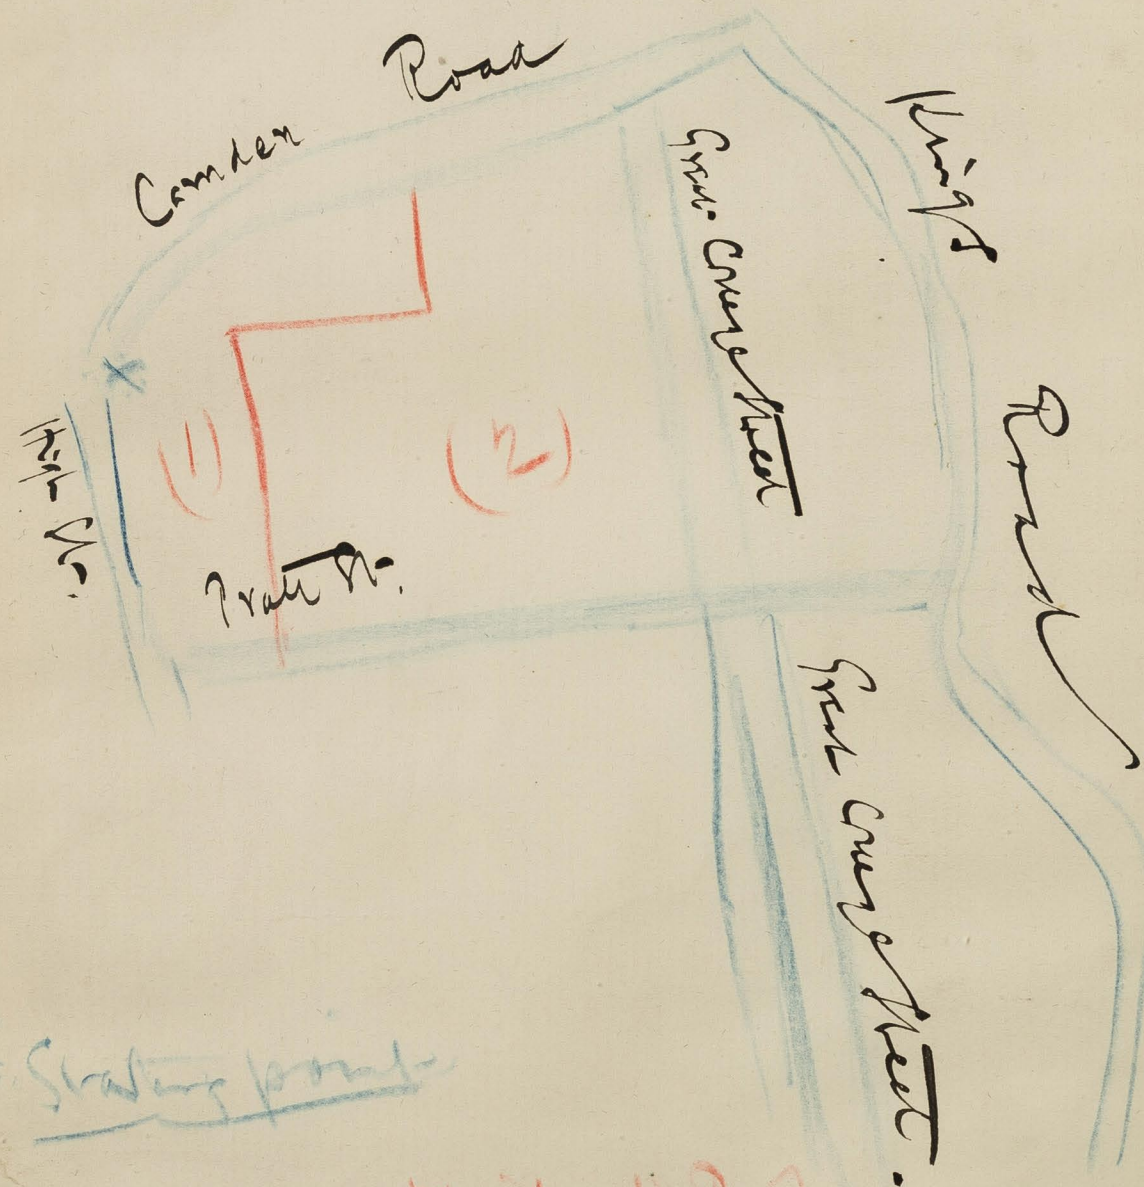 Camden Road
Kings Road
Great College Street
High St.
(1)
(2)
Pratt St.
Great College Street.
Starting point